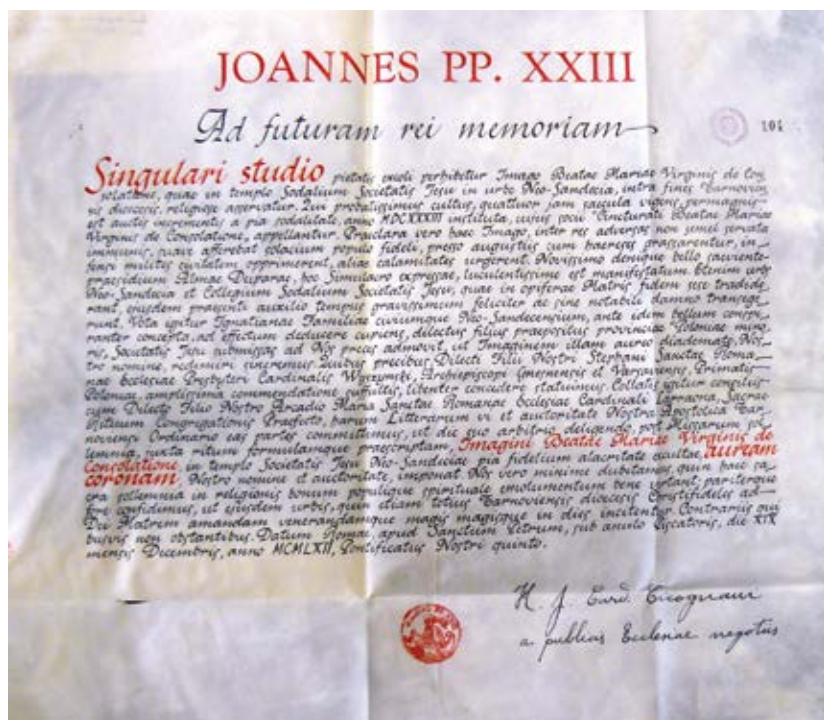 JOANNES PP. XXIII
Ad futuram rei memoriam
104
Singulari studio pietatis excoli perhibetur Imago Beatae Mariae Virginis de Con
solatione, quae in templo Sodalium Societatis Jesu in urbe Neo-Sandecia, intra fines Tarnovien
sis dioecesis, religiose asservatur. Qui probatissimus cultus, quattuor jam saecula vigens, permagnis
est auctus incrementis a pia sodalitate, anno MDCXXXIII instituta, cujus socii "Cincturati Beatae Mariae
Virginis de Consolatione" appellantur. Praeclara vero haec Imago, inter res adversas non semel servata
immunis, suave afferebat solacium populo fideli, presso angustiis cum haereses grassarentur, in_
fensi milites civitatem opprimerent, aliae calamitates urgerent. Novissimo denique bello saeviente
praesidium Almae Deiparae, hoc Simulacro expressae, luculentissime est manifestatum. Etenim urbs
Neo-Sandecia et Collegium Sodalium Societatis Jesu, quae in opiferae Matris fidem sese tradide_
rant, ejusdem praesenti auxilio tempus gravissimum feliciter ac sine notabili damno transege_
runt. Vota igitur Ignatianae Familiae civiumque Neo-Sandecensium, ante idem bellum conspi_
ranter concepta, ad effectum deducere cupiens, dilectus filius praepositus provinciae Poloniae mino_
ris, Societatis Jesu submissas ad Nos preces admovit, ut Imaginem illam aureo diademate, Nos_
tro nomine, redimiri sineremus. Quibus precibus Dilecti Filii Nostri Stephani Sanctae Roma_
nae Ecclesiae Presbyteri Cardinalis Wyszyński, Archiepiscopi Gnesnensis et Varsaviensis, Primatis
Poloniae, amplissima commendatione suffultis, libenter concedere statuimus. Collatis igitur consiliis
cum Dilecto Filio Nostro Arcadio Maria Sanctae Romanae Ecclesiae Cardinali Larraona, Sacrae
Rituum Congregationis Praefecto, harum Litterarum vi et auctoritate Nostra Apostolica Tar_
noviensi Ordinario eas partes committimus, ut die suo arbitrio deligendo, post Missarum sol_
lemnia, juxta ritum formulamque praescriptam, Imagini Beatae Mariae Virginis de
Consolatione in templo Societatis Jesu Neo-Sandeciae pia fidelium alacritate excultae, auream
coronam Nostro nomine et auctoritate, imponat. Nos vero minime dubitamus, quin haec sa_
cra sollemnia in religionis bonum populique spirituale emolumentum bene vertant, pariterque
fore confidimus, ut ejusdem urbis, quin etiam totius Tarnoviensis dioecesis Christifideles ad
Dei Matrem amandam venerandamque magis magisque in dies incitentur. Contrariis qui
busvis non obstantibus. Datum Romae, apud Sanctum Petrum, sub anulo Piscatoris, die XIX
mensis Decembris, anno MCMLXII, Pontificatus Nostri quinto.
H. J. Card. Cicognani
a publicis Ecclesiae negotiis